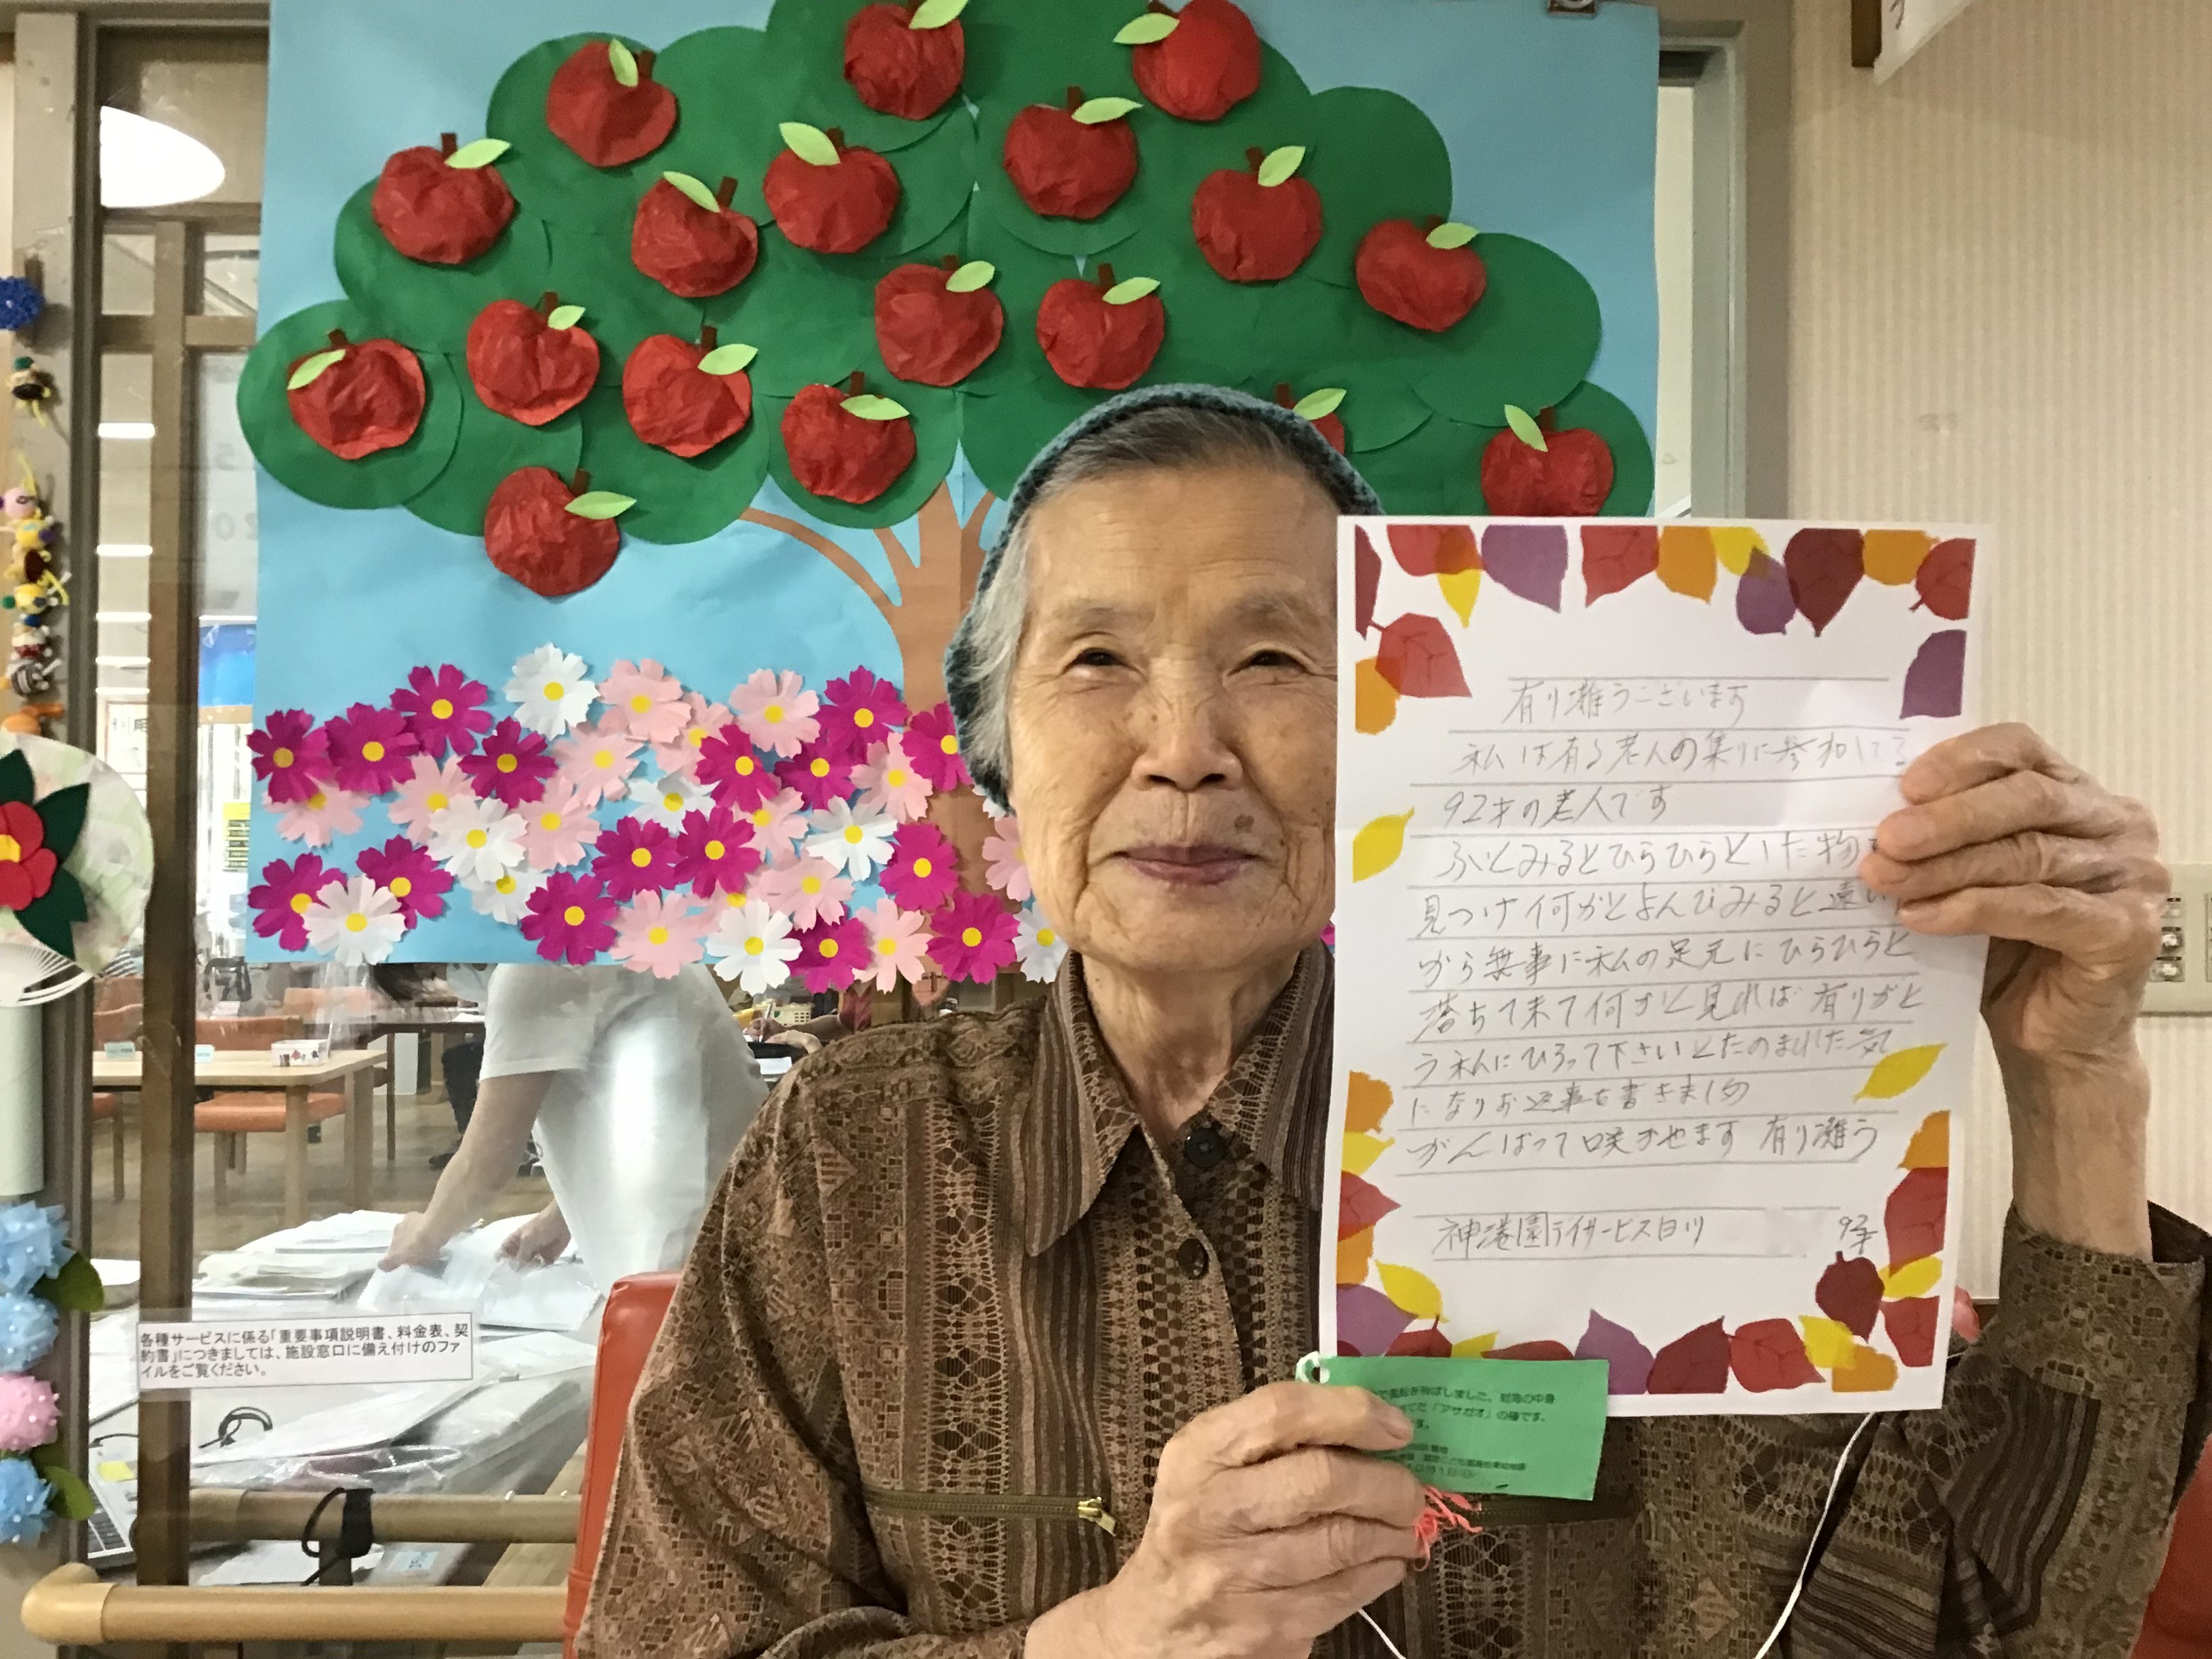 有り難うございます
私は有る老人の集りに参加してる
92才の老人です
ふとみるとひらひらとした物
見つけ何かとよんでみると遠い
から無事に私の足元にひらひらと
落ちて来て何かと見れば有りがと
う私にひろって下さいとたのまれた気
になりお返事を書きました
がんばって咲かせます 有り難う
神港園デイサービス白川
92才
で風船を飛ばしました。短冊の中身
てた「アサガオ」の種です。
す。
各種サービスに係る「重要事項説明書、料金表、契
約書」につきましては、施設窓口に備え付けのファ
イルをご覧ください。